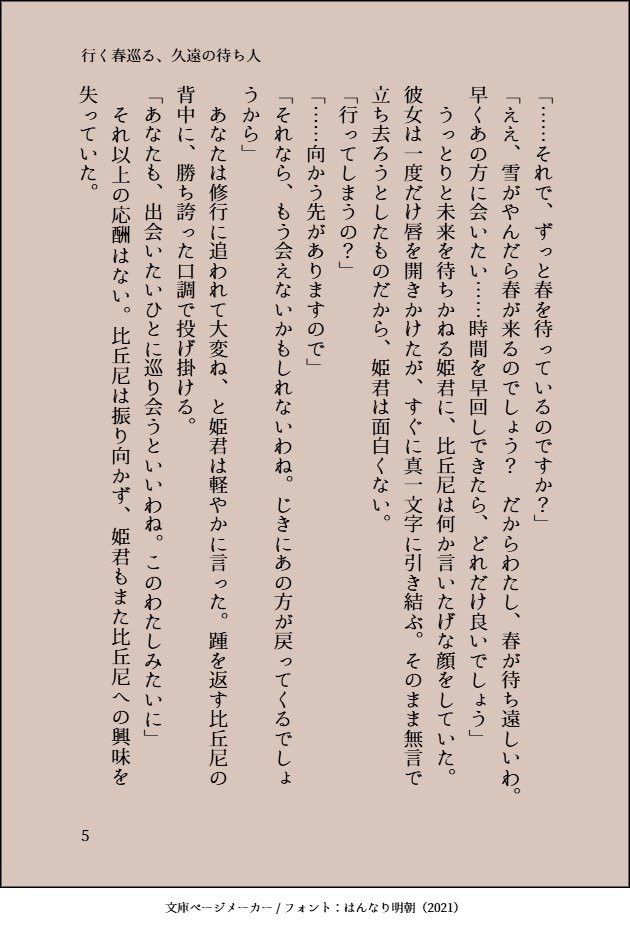 行く春巡る、久遠の待ち人
「……それで、ずっと春を待っているのですか？」
「ええ、雪がやんだら春が来るのでしょう？　だからわたし、春が待ち遠しいわ。
早くあの方に会いたい……時間を早回しできたら、どれだけ良いでしょう」
　うっとりと未来を待ちかねる姫君に、比丘尼は何か言いたげな顔をしていた。
彼女は一度だけ唇を開きかけたが、すぐに真一文字に引き結ぶ。そのまま無言で
立ち去ろうとしたものだから、姫君は面白くない。
「行ってしまうの？」
「……向かう先がありますので」
「それなら、もう会えないかもしれないわね。じきにあの方が戻ってくるでしょ
うから」
　あなたは修行に追われて大変ね、と姫君は軽やかに言った。踵を返す比丘尼の
背中に、勝ち誇った口調で投げ掛ける。
「あなたも、出会いたいひとに巡り会うといいわね。このわたしみたいに」
　それ以上の応酬はない。比丘尼は振り向かず、姫君もまた比丘尼への興味を
失っていた。
5
文庫ページメーカー / フォント：はんなり明朝（2021）